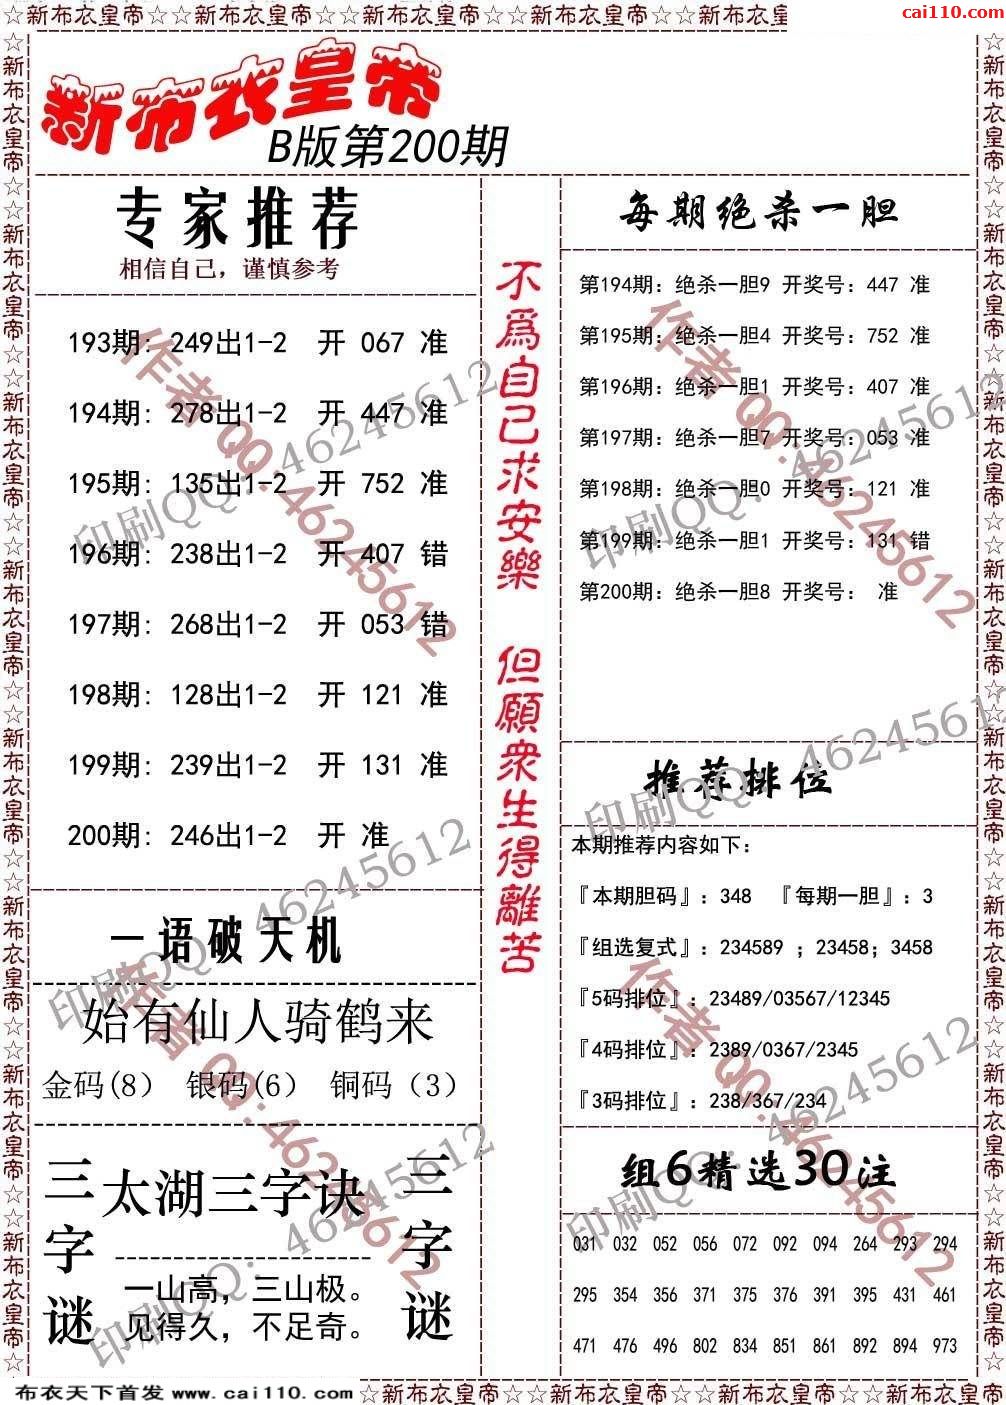 ☆新布衣皇帝☆☆新布衣皇帝☆☆新布衣皇帝☆☆新布衣皇帝☆☆新布衣皇帝☆☆新布衣皇帝
cai110.com
新布衣皇帝
B版第200期
专家推荐
相信自己，谨慎参考
193期: 249出1-2 开 067 准
194期: 278出1-2 开 447 准
195期: 135出1-2 开 752 准
196期: 238出1-2 开 407 错
197期: 268出1-2 开 053 错
198期: 128出1-2 开 121 准
199期: 239出1-2 开 131 准
200期: 246出1-2 开 准
一语破天机
始有仙人骑鹤来
金码(8） 银码(6） 铜码（3）
三字谜
太湖三字诀
一山高，三山极。
见得久，不足奇。
三字谜
不為自己求安樂 但願衆生得離苦
每期绝杀一胆
第194期: 绝杀一胆9 开奖号: 447 准
第195期: 绝杀一胆4 开奖号: 752 准
第196期: 绝杀一胆1 开奖号: 407 准
第197期: 绝杀一胆7 开奖号: 053 准
第198期: 绝杀一胆0 开奖号: 121 准
第199期: 绝杀一胆1 开奖号: 131 错
第200期: 绝杀一胆8 开奖号: 准
推荐排位
本期推荐内容如下:
『本期胆码』: 348 『每期一胆』: 3
『组选复式』: 234589 ; 23458; 3458
『5码排位』: 23489/03567/12345
『4码排位』: 2389/0367/2345
『3码排位』: 238/367/234
组6精选30注
031 032 052 056 072 092 094 264 293 294
295 354 356 371 375 376 391 395 431 461
471 476 496 802 834 851 861 892 894 973
作者QQ:46245612
印刷QQ: 46245612
布衣天下首发 www.cai110.com ☆新布衣皇帝☆☆新布衣皇帝☆☆新布衣皇帝☆☆新布衣皇帝☆